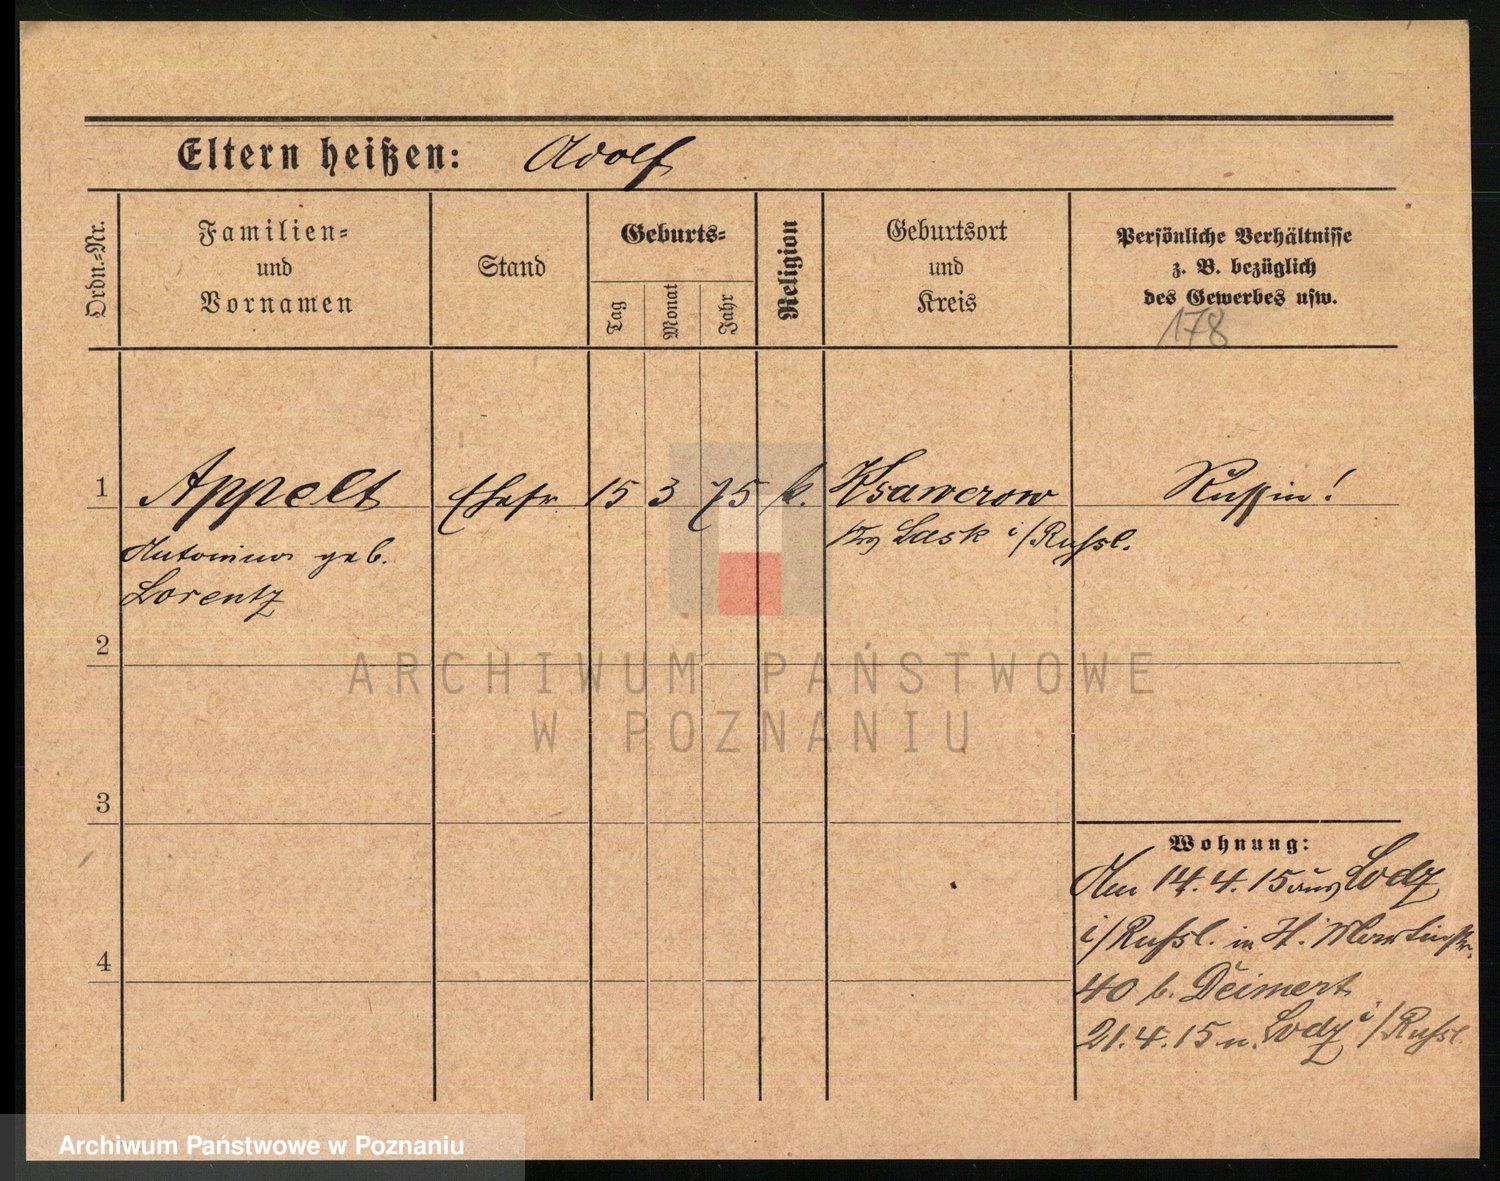 Eltern heißen: Adolf
Ordn.-Nr.
Familien-
und
Vornamen
Stand
Geburts-
Tag
Monat
Jahr
Religion
Geburtsort
und
Kreis
Persönliche Verhältnisse
z. B. bezüglich
des Gewerbes usw.
178
1 Appelt Ehefr. 15 3 75 k. Ksawerow Russin!
Antonina geb. Lask i/Russl.
Lorentz
2
ARCHIWUM PAŃSTWOWE
W POZNANIU
3
Wohnung:
Am 14.4.15 aus Lodz
i/Russl. in H. Martinstr.
4
40 b. Deimert
21.4.15 n. Lodz i/Russl.
Archiwum Państwowe w Poznaniu